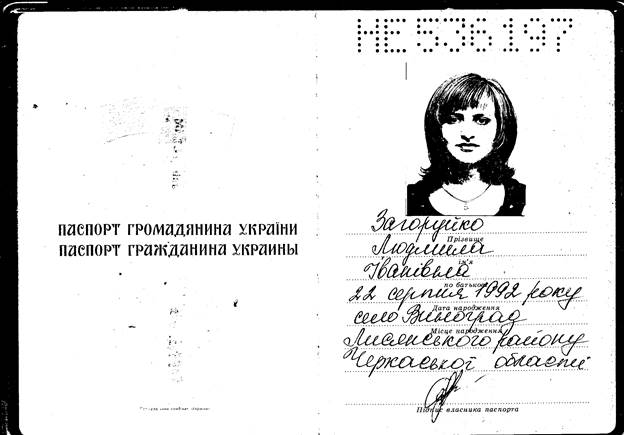 НЕ536197
ПАСПОРТ ГРОМАДЯНИНА УКРАЇНИ
ПАСПОРТ ГРАЖДАНИНА УКРАИНЫ
Загоруйко
Прізвище
Людмила
ім'я
Іванівна
по батькові
22 серпня 1992 року
Дата народження
село Виноград
Місце народження
Лисянського району
Черкаської області
Підпис власника паспорта